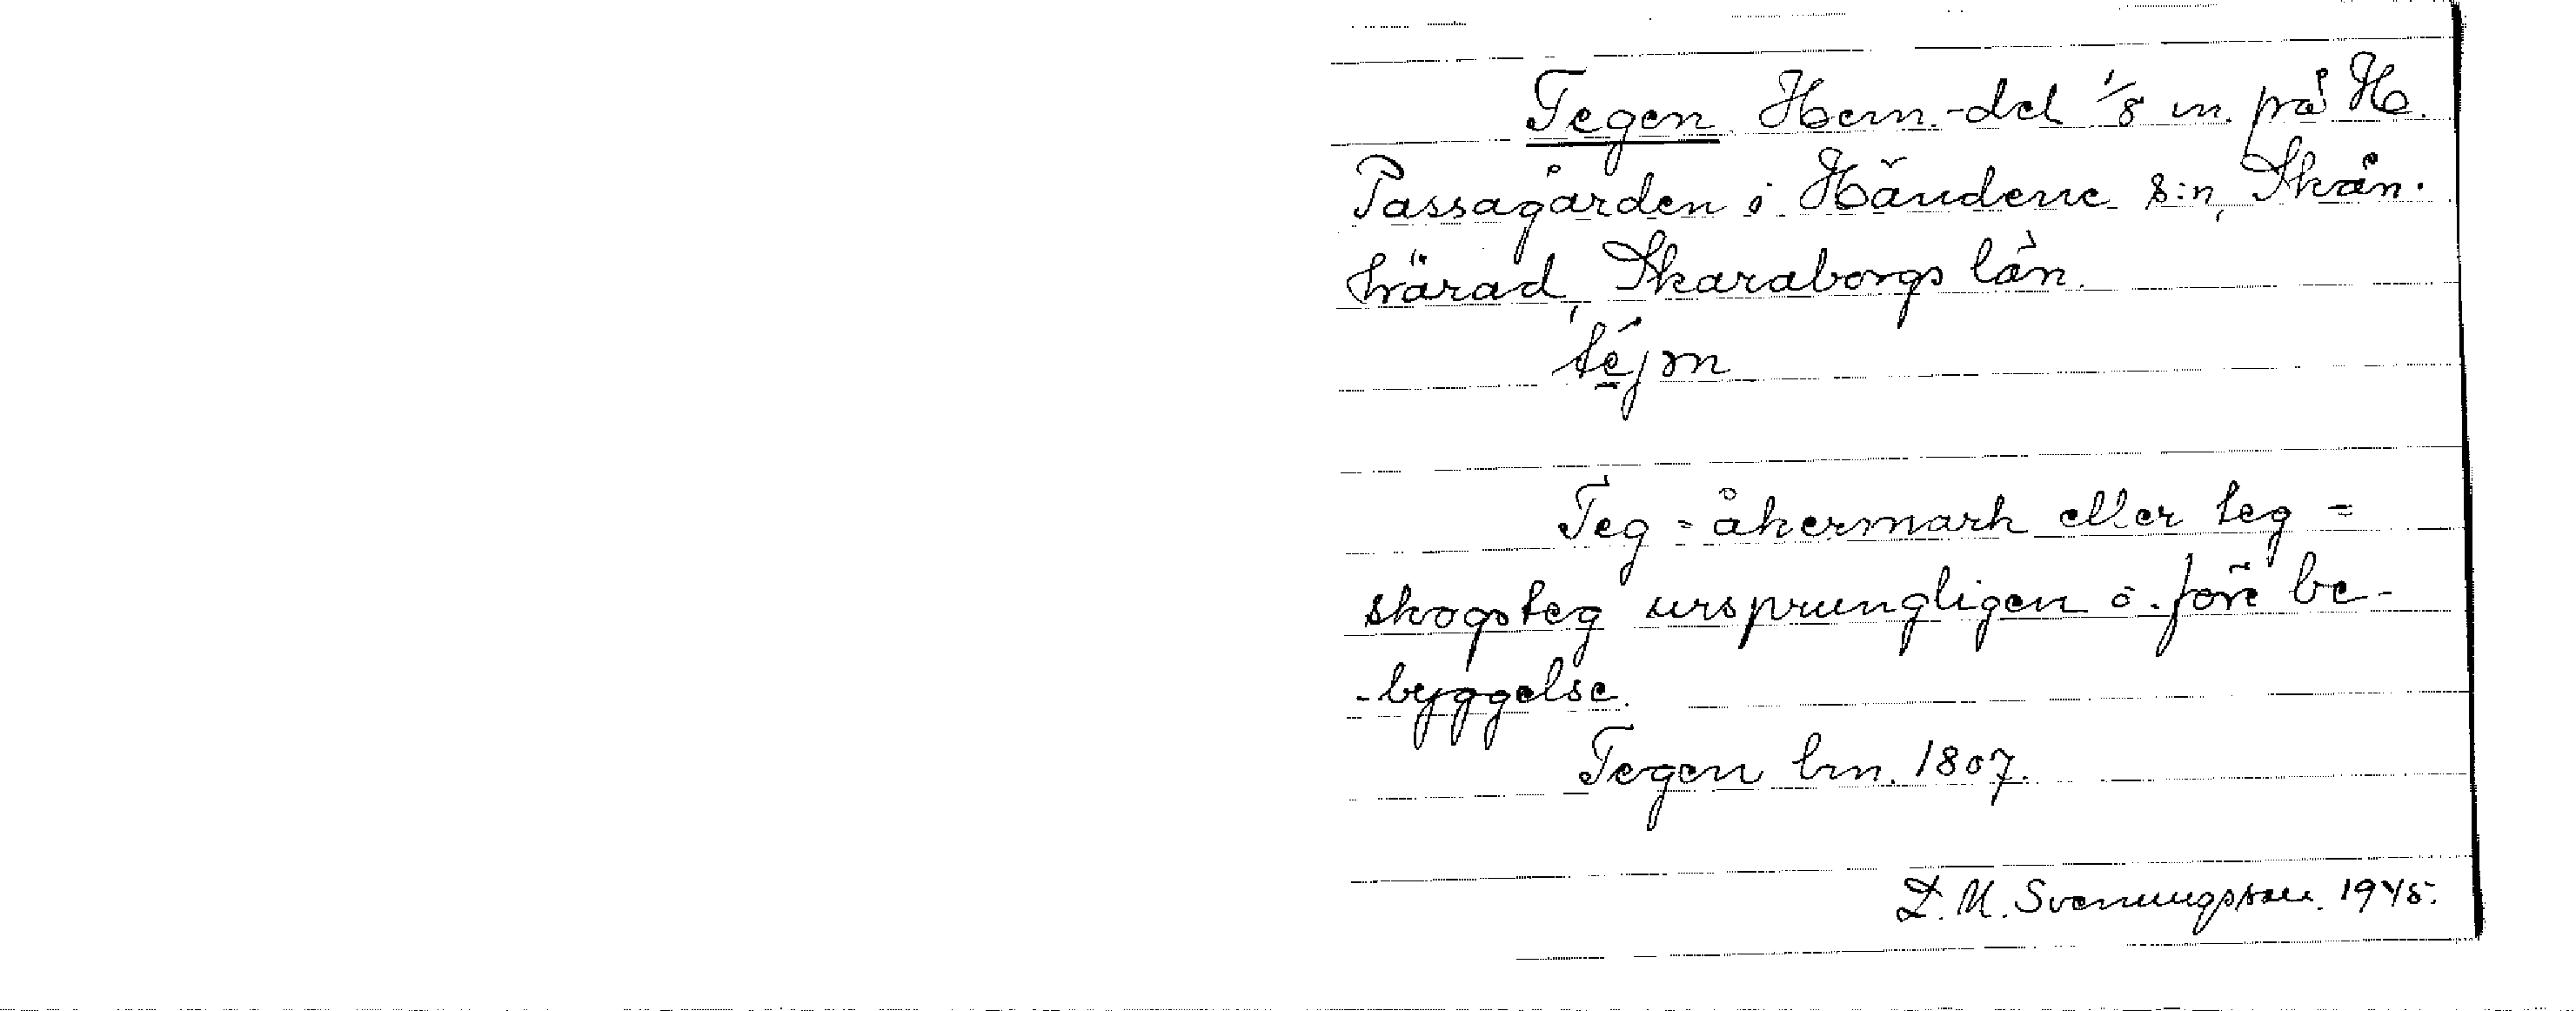 Tegen Hem.-del 1/8 m. på H.
Passagården i Händene s:n, Skån.
härad, Skaraborgs län.
téjən
Teg = åkermark eller teg =
skogsteg ursprungligen o. före be-
-byggelse.
Tegen bn. 1807.
D. M. Svenungsson. 1945.